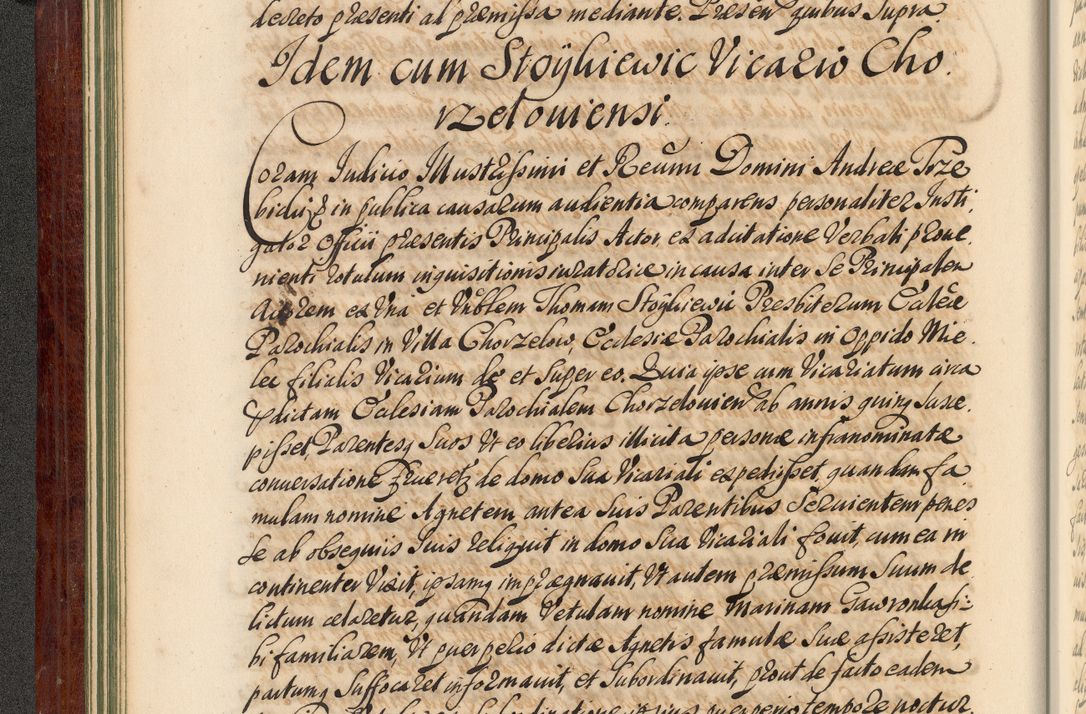 decreto præsenti al præmissa mediante. Præsen quibus Supra
Idem cum Stoÿkiewic Vicario Cho.
rzelouiensi.
Coram Iudicio Illustrissimi et Reũmi Domini Andreæ Trze
bicki & in publica causarum audientia comparens personaliter Insti
gator Officii præsentis Principalis Actor ex ad citatione Verbali proue.
nienti rotulum inquisitionis iuratoriæ in causa inter Se Principalem
Actorem ex Vna et Vnblem Thomam Stoÿkiewic Presbiterum Eccleæ
Parochialis in Villa Chorzelow, Ecclesiæ Parochialis in Oppido Mie.
lec filialis Vicarium de et super eo. Quia ipse cum Vicariatum circa
prædictam Ecclesiam Parochialem Chorzelouien ab annis quinq Susce.
pisset, Parentesq Suos Vt eo liberius illicita personæ infranominatæ
conuersatione frueretur de domo sua Vicariali expedisset, quandam fa
mulam nomine Agnetem antea Suis Parentibus Seruientem penes
se ab obsequiis Suis reliquit in domo Sua Vicariali fouit, cum ea in
continenter Vixit, ipsamq imprægnauit, Vt autem præmissum Suum de
lictum celaretur, quandam Vetulam nomine Marinam Gawronka si-
bi familiarem, Vt puerperio dictæ Agnetis famulæ Suæ assisteret,
partumq Suffocaret informauit, et Subordinauit, prout de facto eadem
puerperio tempore noctur